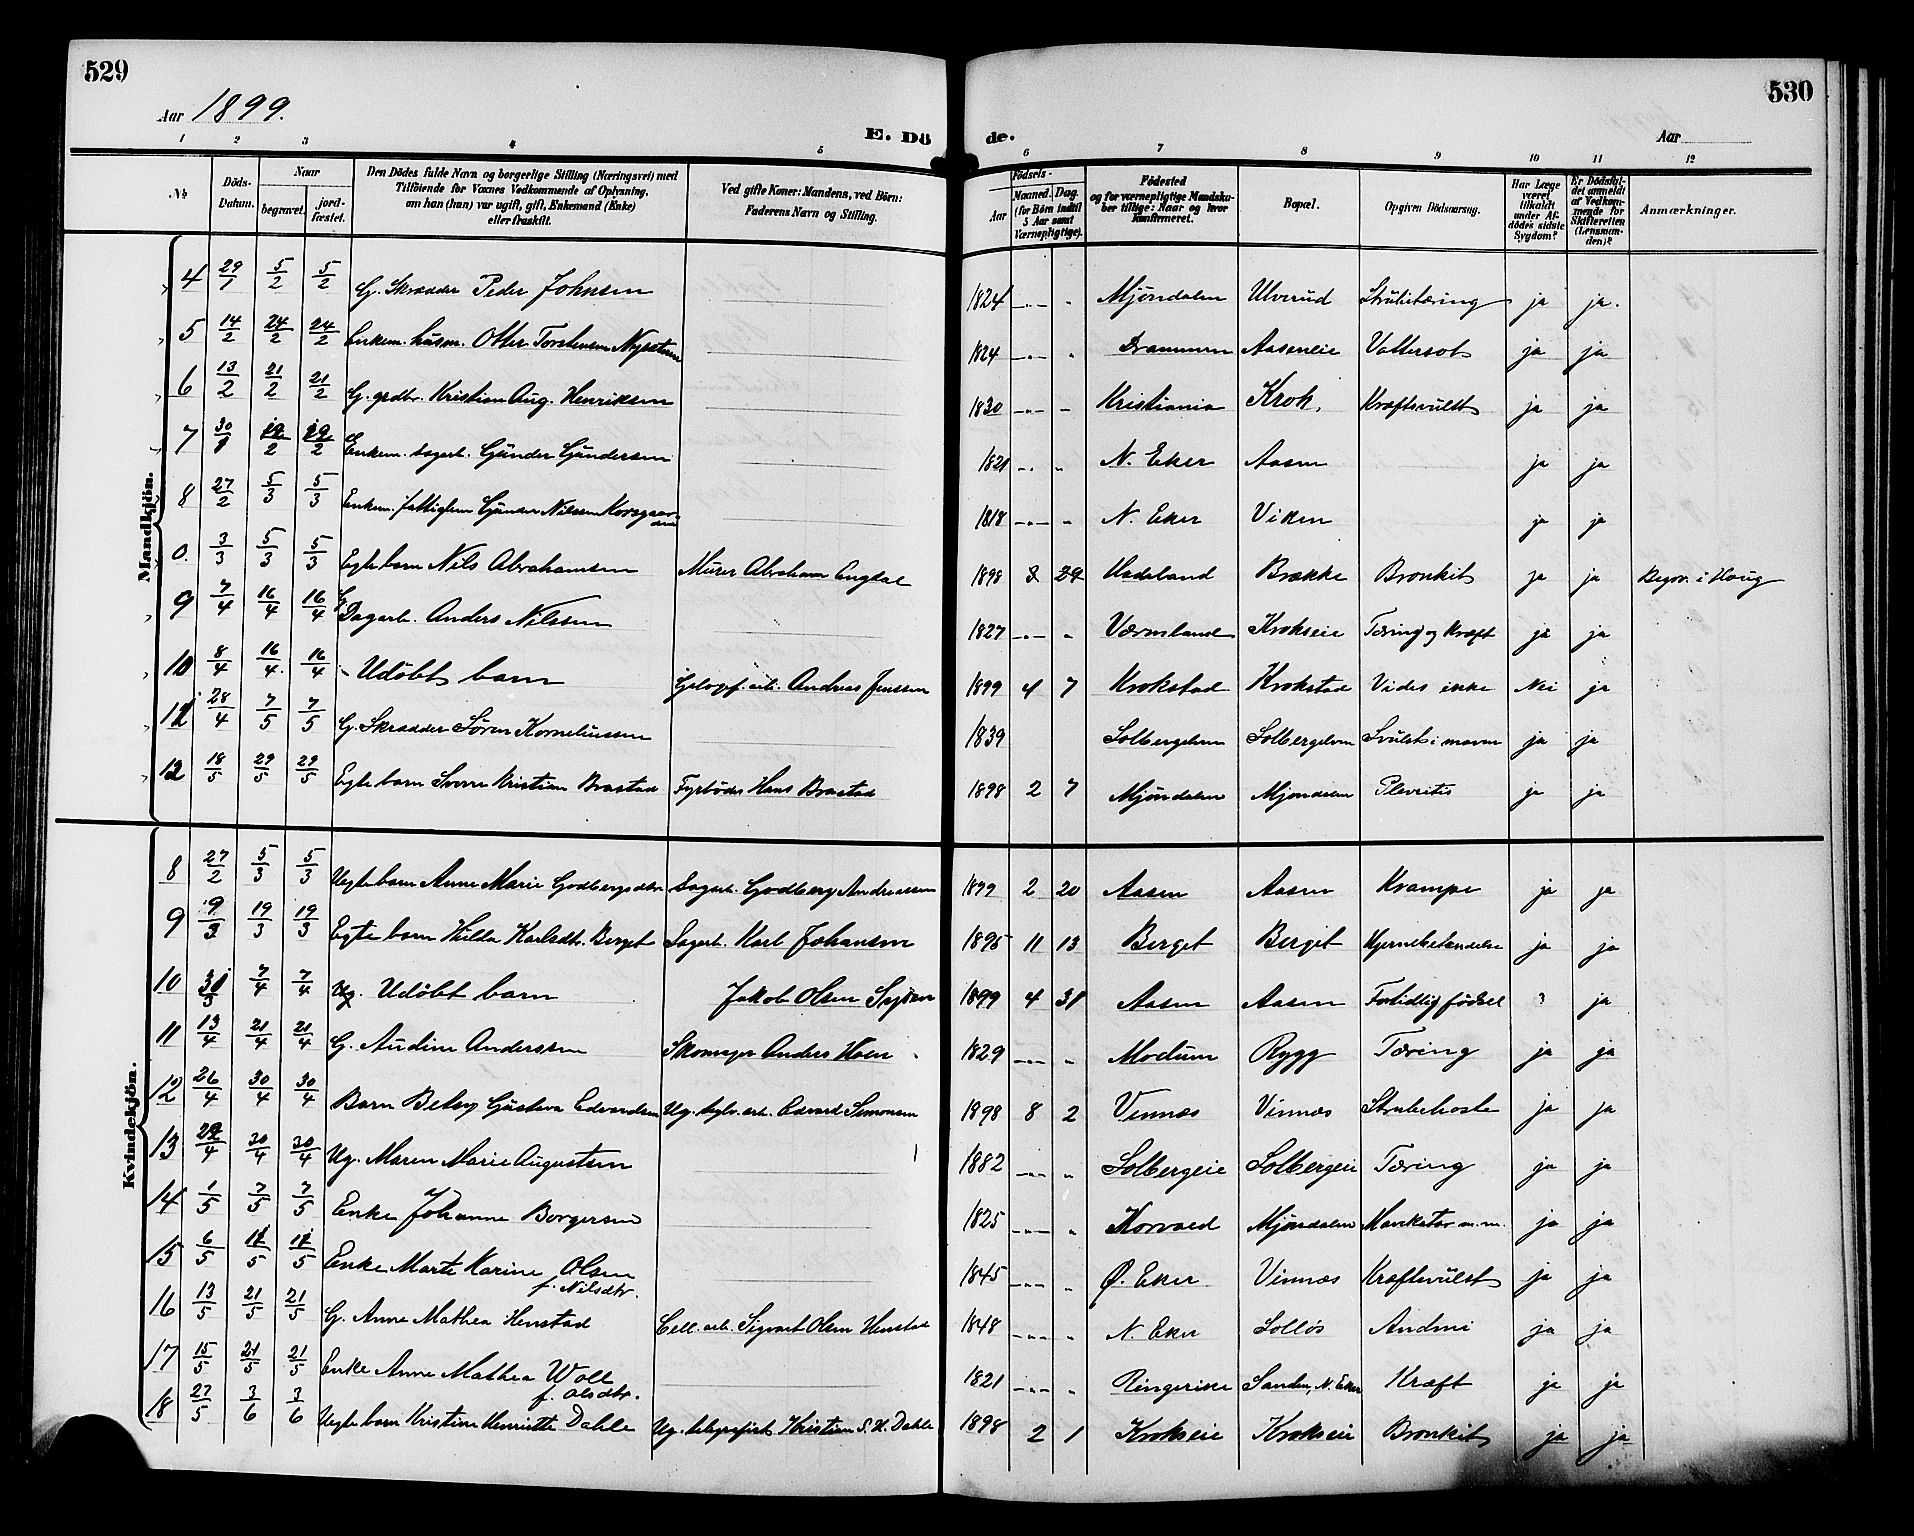 529
530
Aar 1899.
Aar
E. Dö
de.
1 2 3 4 5 6 7 8 9 10 11 12
№
Döds-Datum.
Naar
begravet.
jord-fæstet.
Den Dödes fulde Navn og borgerlige Stilling (Næringsvei) med
Tilföiende for Voxnes Vedkommende af Oplysning,
om han (hun) var ugift, gift, Enkemand (Enke)
eller fraskilt.
Ved gifte Koner: Mandens, ved Börn:
Faderens Navn og Stilling.
Födsels-
Aar
Maaned. Dag.
(for Börn indtil
5 Aar samt
Værnepligtige).
Födested
og for værnepligtige Mandska-
ber tillige: Naar og hvor
konfirmeret.
Bopæl.
Opgiven Dödsaarsag.
Har Læge
været
tilkaldt
under Af-
dödes sidste
Sygdom?
Er Dödsfal-
det anmeldt
af Vedkom-
mende for
Skifteretten
(Lensman-
den)?
Anmærkninger.
Mandkjön.
4 29/1 5/2 5/2 G. Skrædder Peder Johnsen 1824 Mjöndalen Ulverud Strubetæring ja ja.
5 14/2 24/2 24/2 Enkem. husm. Otter Torstensen Nysetuen 1824 Drammen Aaseneie Vattersot ja ja
6 13/2 21/2 21/2 G. grdbr. Kristian Aug. Henriksen 1830 Kristiania Krok. Kræftsvulst ja ja
7 30/1 /2 /2 Enkem. dagarb. Gunder Gundersen 1821 N. Eker Aasen ja ja
8 27/2 5/3 5/3 Enkem. fattiglem Gunder Nilsen Korsgaarden 1818 N. Eker Viken ja ja
0. 3/3 5/3 5/3 Egte barn Nils Abrahamsen Murer Abraham Engdal 1898 3 29 Hadeland Brække Bronkit ja ja Begr. i Houg
9 7/4 16/4 16/4 G. Dagarb. Anders Nilssen 1827 Værmland Krokseie Tæring og Kræft ja ja
10 8/4 16/4. 16/4 Udöbt barn Andreas Jenssen 1899 4 7 Krokstad Krokstad Vides ikke Nei ja
11 28/4 7/5 7/5 G. Skrædder Sören Korneliussen 1839 Solbergelven Solbergelven Svulst i maven ja ja
12 18/5 29/5 29/5 Egte barn Sverre Kristian Brastad Fyrböder Hans Brastad 1898 2 7 Mjöndalen Mjöndalen Plevritis ja ja
Kvindekjön.
8 27/2 5/3 5/3 Uegte barn Anne Marie Godbergsdtr Sagarb. Godberg Andreassen 1899 2 20 Aasen Aasen Krampe ja ja
9 9/3 19/3 19/3 Egte barn Hilda Karlsdtr. Berget Sagarb. Karl Johansen 1895 11 13 Berget Berget Hjernebetændelse ja ja
10 31/3 7/4 7/4 Udöbt barn Jakob Olsen 1899 4 31 Aasen Aasen Fortidlig födsel ? ja
11 13/4 21/4 21/4 G. Audine Anderssen Skomager Anders Hoen 1829 Modum Rygg Tæring ja ja
12 26/4 30/4 30/4 Barn Betsy Gustava Edvardsen Ug. arb. Edvard Simonsen 1898 8 2 Vinnæs Vinnæs Strubehoste ja ja
13 /4 30/4 30/4 Ug. Maren Marie Augustsen 1882 Solbergeie Solbergeie Tæring ja ja
14 1/5 7/5 7/5 Enke Johanne Borgersen 1825 Mjöndalen m.m. ja ja
15 6/5 /5 /5 Enke Marte Karine Olsen
f. Nilsdtr. 1845 Ø. Eker Vinnæs Kræftsvulst ja ja
16 13/5 21/5 21/5 G. Anne Mathea Henstad Cell. arb. Sigvart Olsen Henstad 1848 N. Eker Solløs Andmi ja ja
17 15/5 21/5 21/5 Enke Anne Mathea Woll
f. Olsdtr. 1821 Ringerike Sanden, N. Eker Kræft ja ja
18 27/5 3/6 3/6 Uegte barn Kristine Henriette Dahle Ug. telegrafist Kristian S. H. Dahle 1898 2 1 Krokseie Krokseie Bronkit ja ja